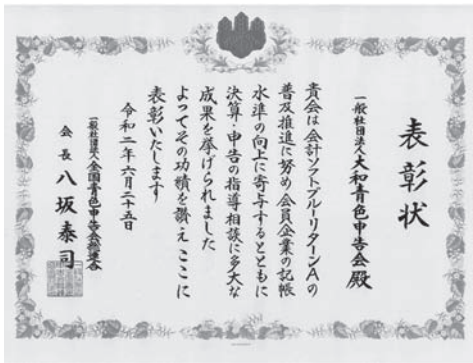 表彰状
一般社団法人大和青色申告会殿
貴会は会計ソフトブルーリターンAの
普及推進に努め会員企業の記帳
水準の向上に寄与するとともに
決算・申告の指導相談に多大な
成果を挙げられました
よってその功績を讃えここに
表彰いたします
令和二年六月二十五日
一般社団法人全国青色申告会総連合
会長 八坂泰司